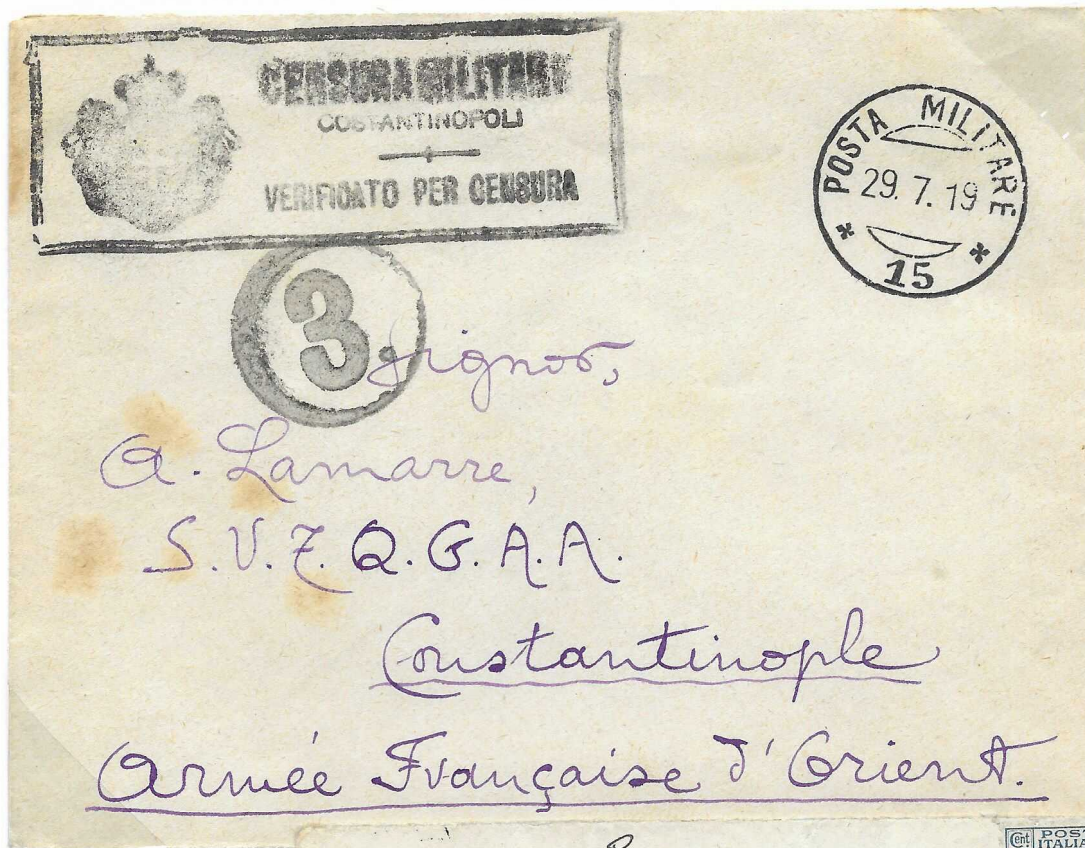 CENSURA MILITARE
COSTANTINOPOLI
VERIFICATO PER CENSURA
POSTA MILITARE
29.7.19
15
3
Signor,
A. Lamarre,
S.V.Z.Q.G.A.A.
Constantinople
Armée Française d'Orient.
Cent
POST
ITALIA